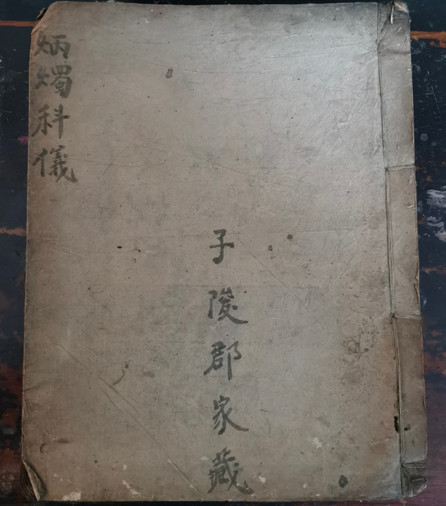 子陵郡家藏
炳燭科儀